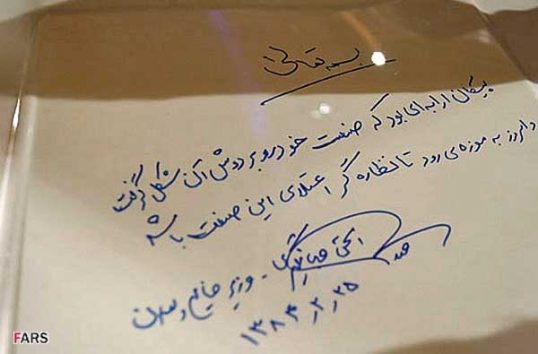 بسمه تعالی
پیکان ارابه‌ای بود که صنعت خودرو بر دوش آن شکل گرفت
و امروز به موزه می رود تا نظاره گر اعتلای این صنعت باشد
اسحق جهانگیری - وزیر صنایع و معادن
۱۳۸۴٫۲٫۲۵
FARS